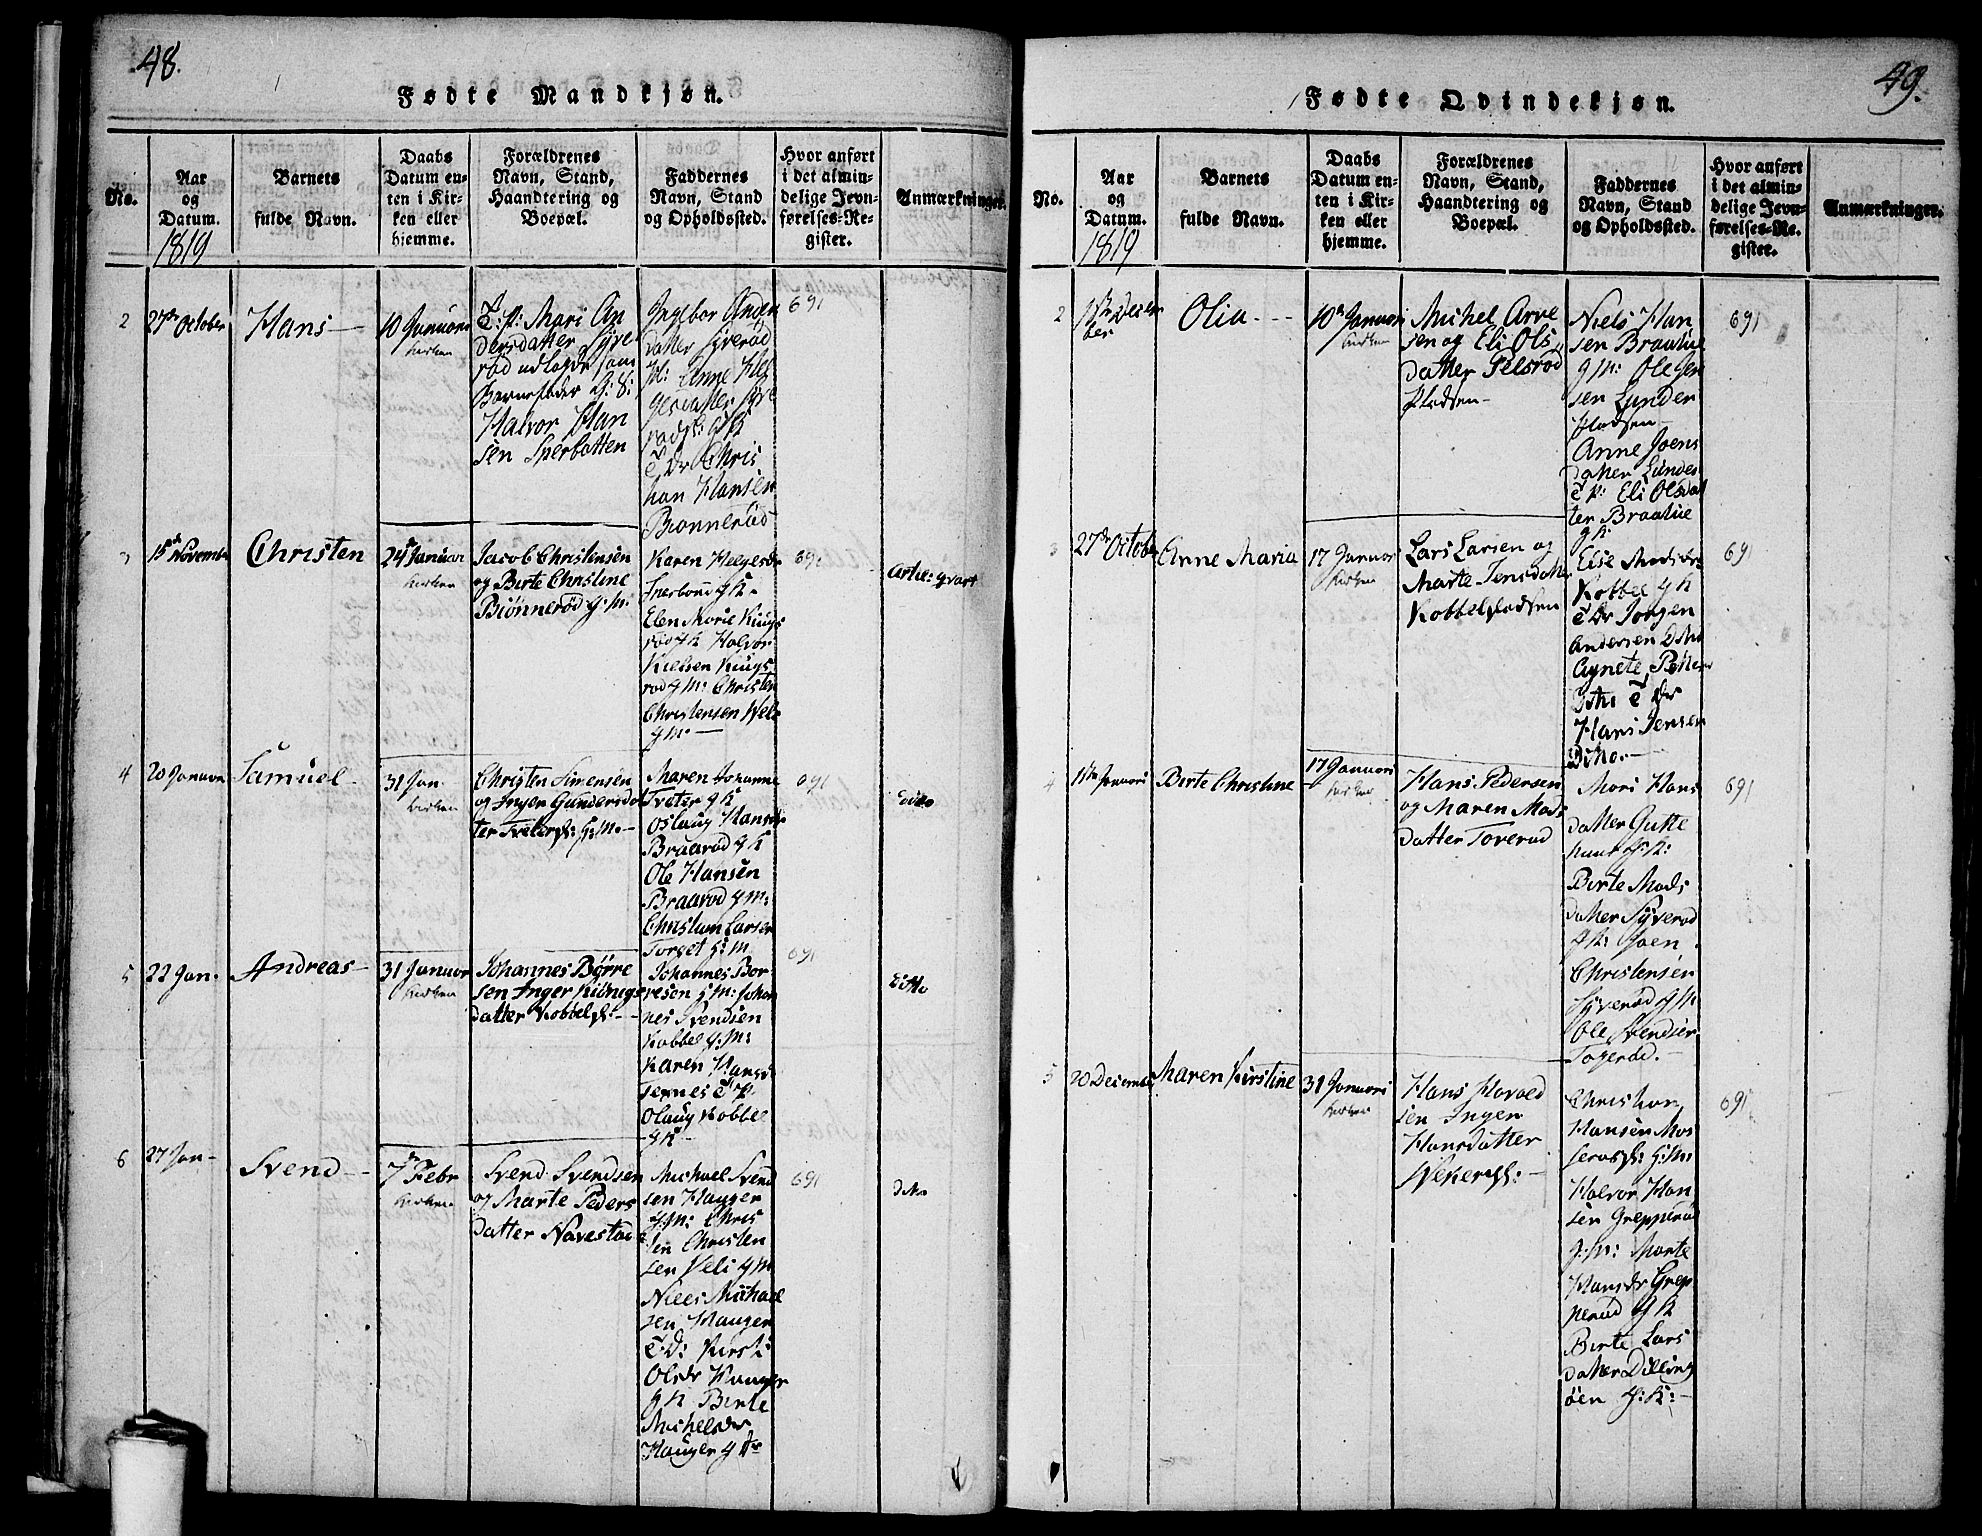 48.
Fødte Mandkjøn.
No.
Aar
og
Datum.
1819
Barnets
fulde Navn.
Daabs
Datum en-
ten i Kir-
ken eller
hjemme.
Forældrenes
Navn, Stand,
Haandtering og
Boepæl.
Faddernes
Navn, Stand
og Opholdssted.
Hvor anført
i det almin-
delige Jevn-
førelses-Re-
gister.
Anmærkninger.
2
27de October
Hans
10 Januari
Kirken
Mari An
dersdatter Syve
rød udlagde som
Barnefader
Halvor Han
sen Sperbotten
Ingebor Anders
datter Syverød
Anne Hel
gesdatter Syve
rød
Chris
tian Hansen
Biønnerød
691
3
15de November
Christen
24de Januar
Kirken
Jacob Christensen
og Birte Christine
Biønnerød G: M:
Karen Helgesdr
G K
Elen Marie Kiugs
rød G K Halvor
Nielsen Kiugs
rød G M: Christen
Christensen Vele
G M
691
4
20 Januar
Samuel
31 Jan
Kirken
Christen Simensen
og Inger Gundersdat
ter Tveter G: M:
Maren Johanne
Tveter G K
Oslaug Hansdr
Braarød G K
Ole Hansen
Braarød G M:
Christian Larsen
Torget G: M.
691
ditto
5
22 Jan
Andreas
31 Januar
Kirken
Johannes Børre
sen Inger Kiønigs
datter Kobbel
Johannes Bør
resen G: M: Johan
nes Svendsen
Kobbel G: M:
Karen Hansd
Ternes
Olaug Kobbel
G K
691
ditto
6
27 Jan
Svend
7de Febr
Kirken
Svend Svendsen
og Marte Peders
datter Navestad
Michael Svend
sen Hauger
G: M: Chris
ten Christen
sen Vele G M
Niels Michael
sen Hauger
Kirsti
Olsdr Hauger
G K Birte
Michelsdr
Hauger G K
691
dito
49.
Fødte Qvindekjøn.
No.
Aar
og
Datum.
1819
Barnets
fulde Navn.
Daabs
Datum en-
ten i Kir-
ken eller
hjemme.
Forældrenes
Navn, Stand,
Haandtering og
Boepæl.
Faddernes
Navn, Stand
og Opholdssted.
Hvor anført
i det almin-
delige Jevn-
førelses-Re-
gister.
Anmærkninger.
2
Decem
ber
Olia
10de Januari
Kirken
Michel Arve
sen og Eli Ols
datter Pelsrød
Pladsen
Niels Han
sen Braatue
G M: Ole Jen
sen Lunder
Pladsen
Anne Joens
datter Lunder
Eli Olsdat
ter Braatue
G K
691
3
27de October
Anne Maria
17 Januari
Kirken
Lars Larsen og
Marte Jensdatter
Kobbelpladsen
Else Madsdr
Kobbel G K
Jørgen
Andersen
Agnete
Hans Jensen
Ditto
691
4
Januari
Birte Christine
17 Januari
Kirken
Hans Pedersen
og Maren Mads
datter Toverød
Mari Hans
datter Gutte
G: K:
Birte Mads
datter Syverød
G K: Joen
Christensen
Syverød G M
Ole Svendsen
Togerød.
691
5
20 December
Maren Kirstine
31 Januari
Kirken
Hans Harold
sen Inger
Hansdatter
Christian
Hansen Mos
G: M:
Halvor Han
sen Grepperød
G: M: Marte
Hansdr Grep
perød G K
Birte Lars
datter Dilling
øen G: K:
691